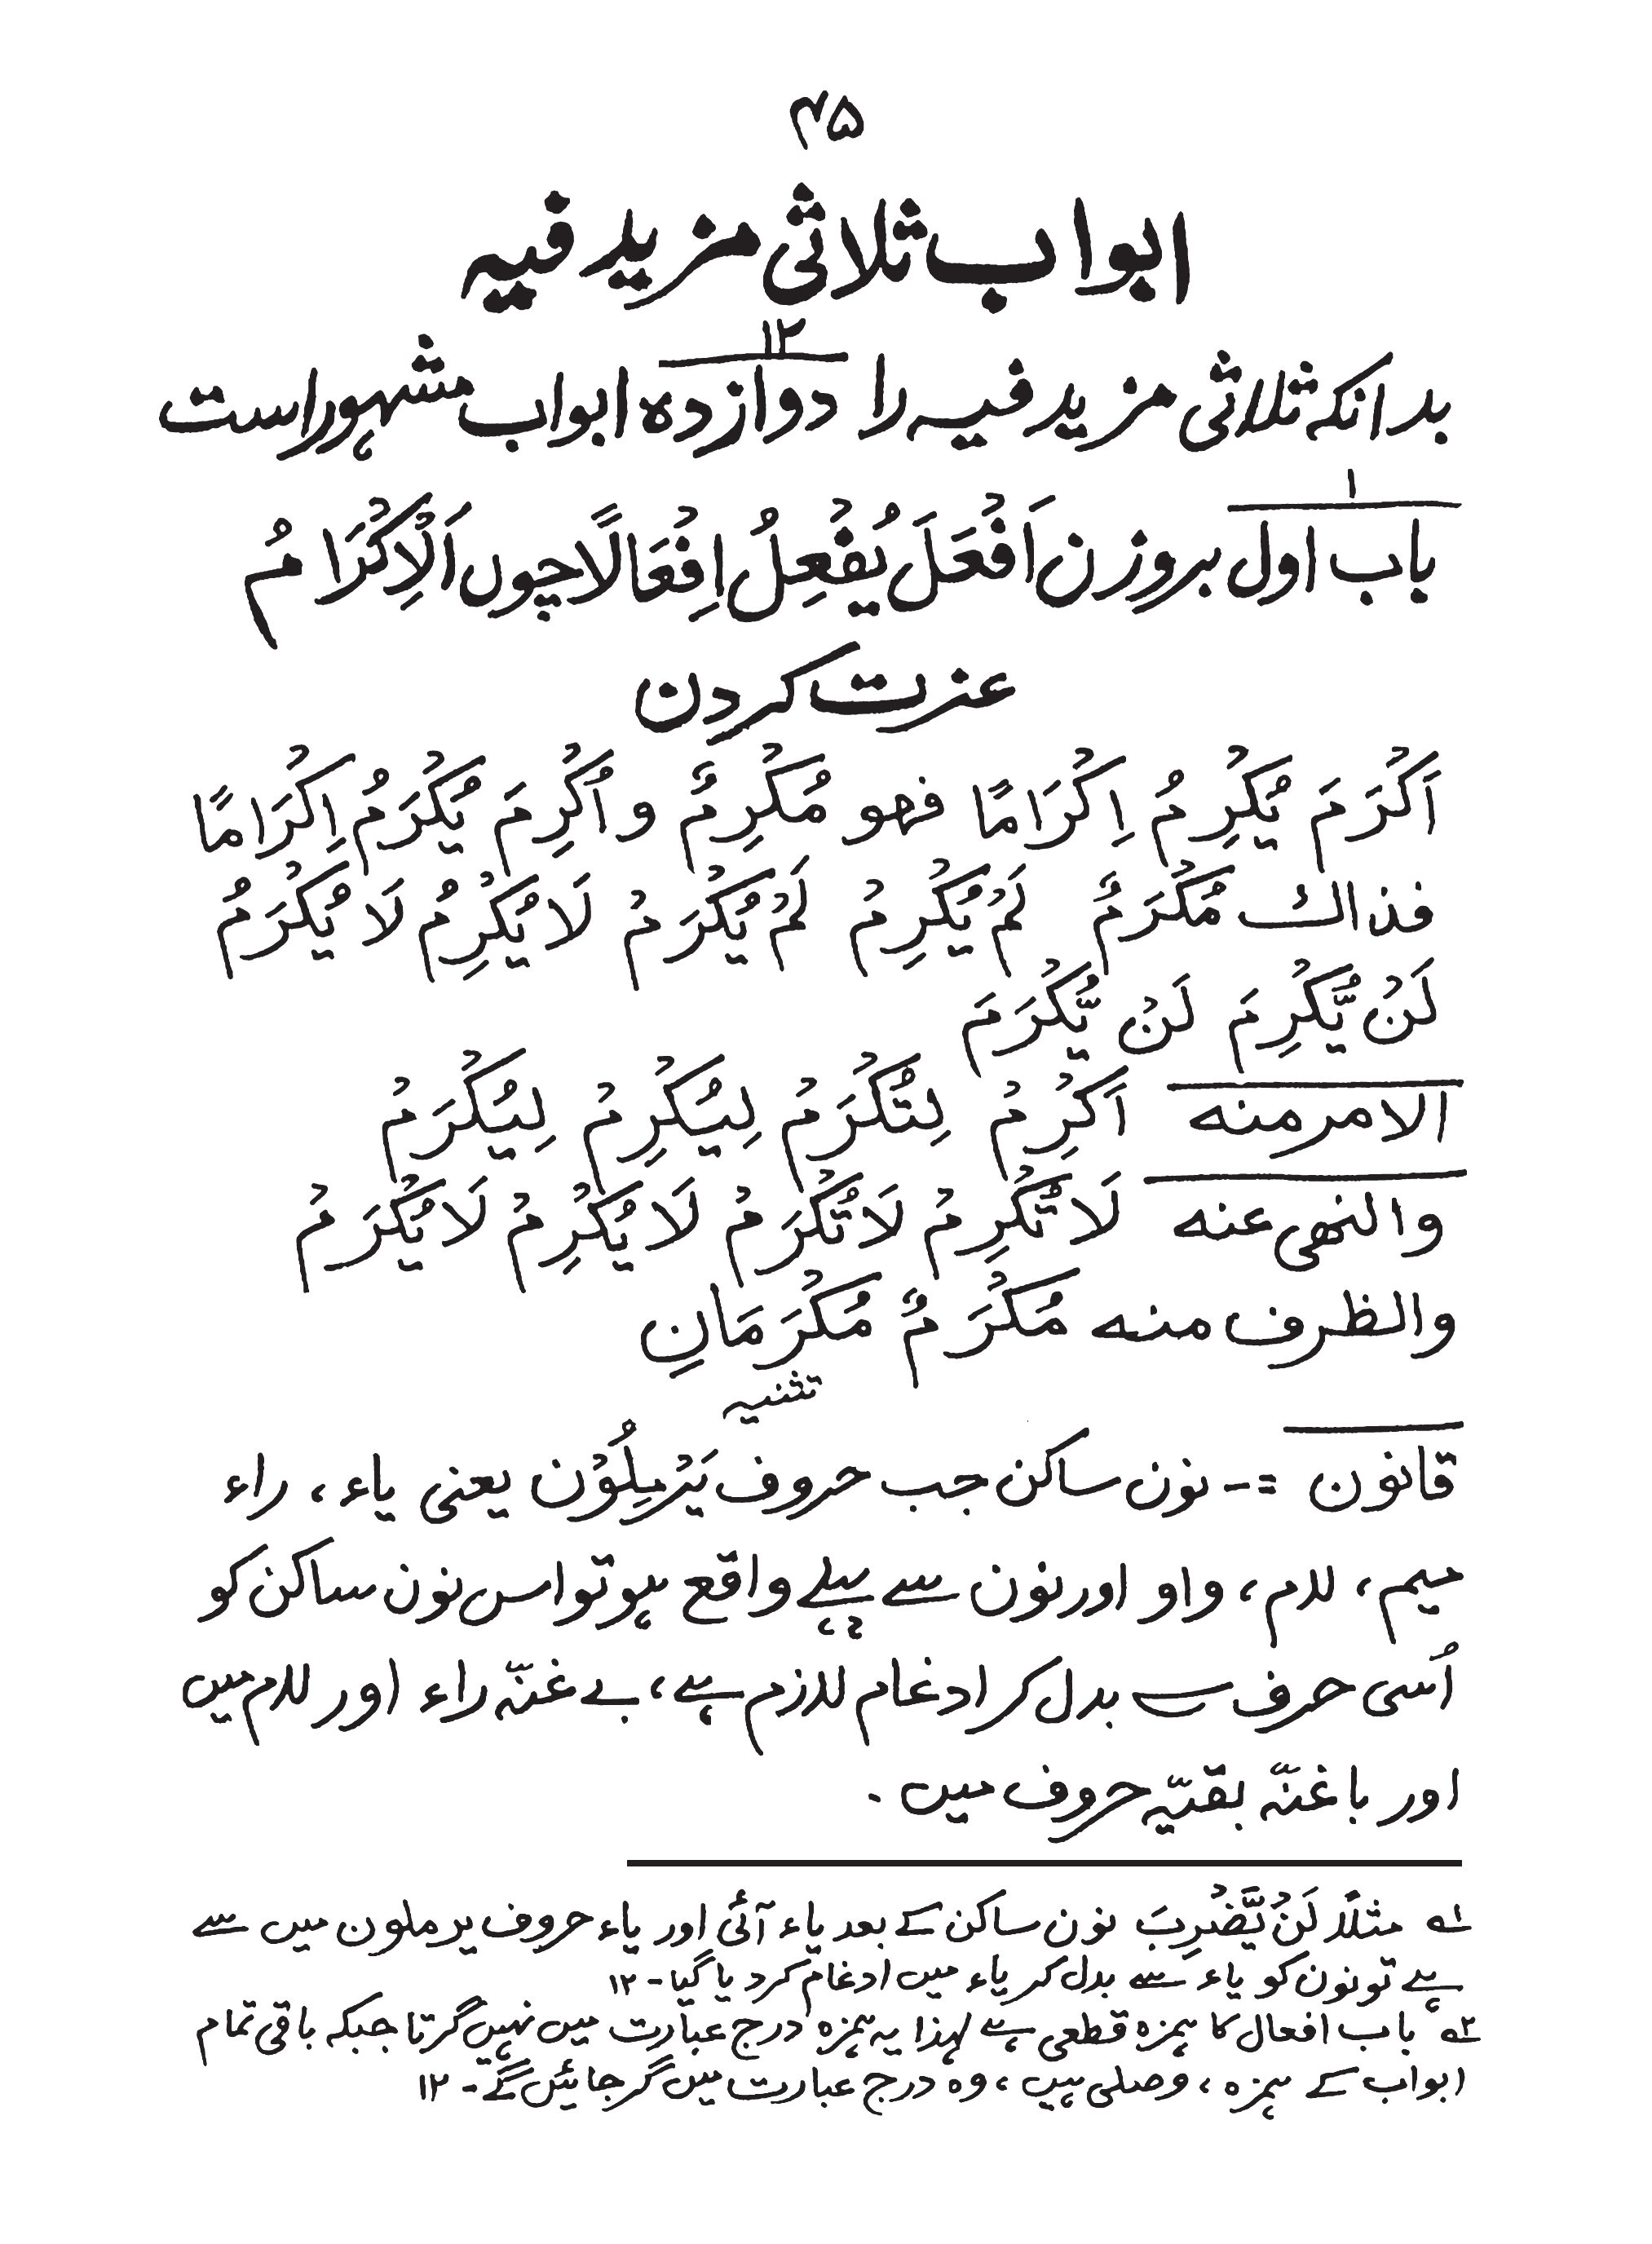 ۴۵
ابواب ثلاثی مزید فیہ
۱۲
بدانکہ ثلاثی مزید فیہ را دوازدہ ابواب مشہور است
۱
باب اول بروزن اَفْعَلَ یُفْعِلُ اِفْعَالًا چوں اَلْاِکْرَامُ
عزت کردن
اَکْرَمَ یُکْرِمُ اِکْرَامًا فهو مُکْرِمٌ و اُکْرِمَ یُکْرَمُ اِکْرَامًا
فذاكَ مُکْرَمٌ لَمْ یُکْرِمْ لَمْ یُکْرَمْ لَا یُکْرِمُ لَا یُکْرَمُ
لَنْ یُّکْرِمَ لَنْ یُّکْرَمَ
الامر منه اَکْرِمْ لِتُکْرَمْ لِیُکْرِمْ لِیُکْرَمْ
والنهی عنه لَا تُکْرِمْ لَا تُکْرَمْ لَا یُکْرِمْ لَا یُکْرَمْ
والظرف منه مُکْرَمٌ مُکْرَمَانِ
تثنیہ
قانون =- نون ساکن جب حروف یَرْمِلُوْن یعنی یاء ، راء
میم ، لام ، واو اور نون سے پہلے واقع ہو تو اس نون ساکن کو
اُسی حرف سے بدل کر ادغام لازم ہے ، بے غنّہ راء اور لام میں
اور با غنّہ بقیّہ حروف میں ۔
۱؎ مثلاً لَنْ یَّضْرِبَ نون ساکن کے بعد یاء آئی اور یاء حروف یرملون میں سے
ہے تو نون کو یاء سے بدل کر یاء میں ادغام کرد یا گیا - ۱۲
۲؎ باب افعال کا ہمزہ قطعی ہے لہذا یہ ہمزہ درج عبارت میں نہیں گرتا جبکہ باقی تمام
ابواب کے ہمزہ ، وصلی ہیں ، وہ درج عبارت میں گر جائیں گے - ۱۲